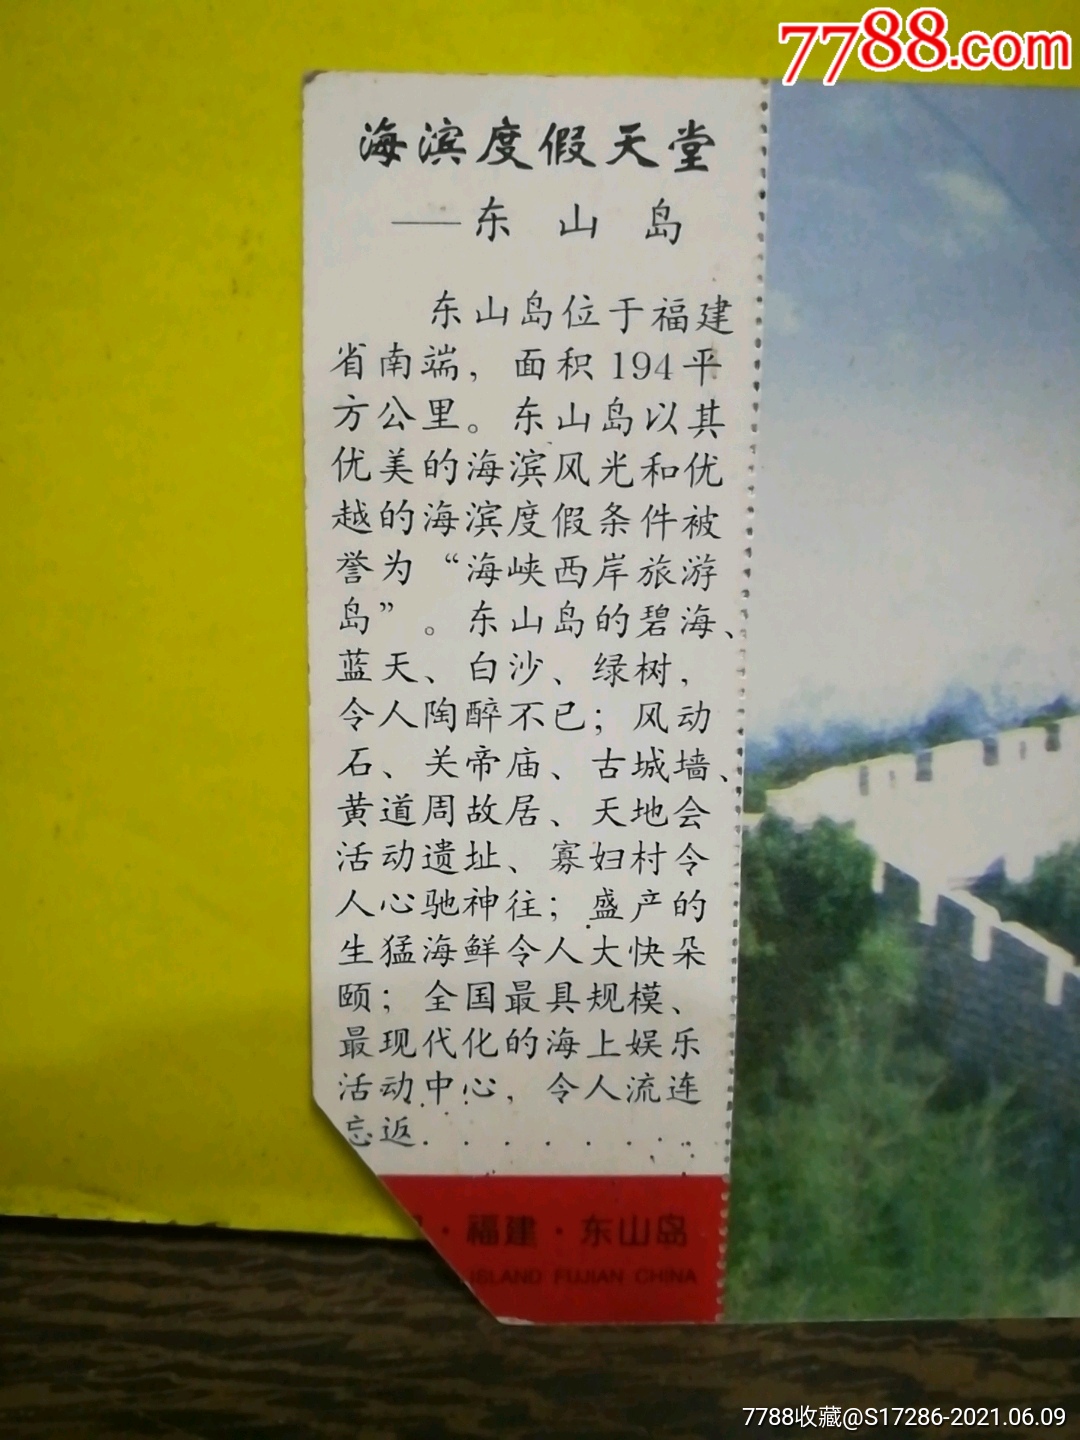 7788.com
海滨度假天堂
——东 山 岛
东山岛位于福建
省南端，面积194平
方公里。东山岛以其
优美的海滨风光和优
越的海滨度假条件被
誉为“海峡西岸旅游
岛”。东山岛的碧海、
蓝天、白沙、绿树，
令人陶醉不已；风动
石、关帝庙、古城墙、
黄道周故居、天地会
活动遗址、寡妇村令
人心驰神往；盛产的
生猛海鲜令人大快朵
颐；全国最具规模、
最现代化的海上娱乐
活动中心，令人流连
忘返. . . . . . . .
·福建·东山岛
ISLAND FUJIAN CHINA
7788收藏@S17286-2021.06.09